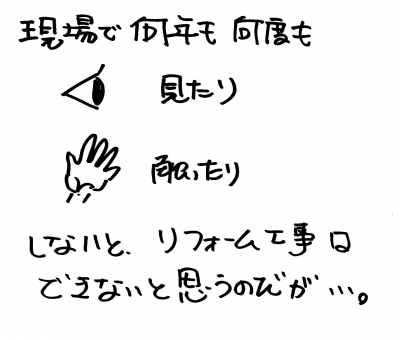 現場で 何年も 何度も
見たり
触ったり
しないと、リフォーム工事は
できないと思うのだが…。